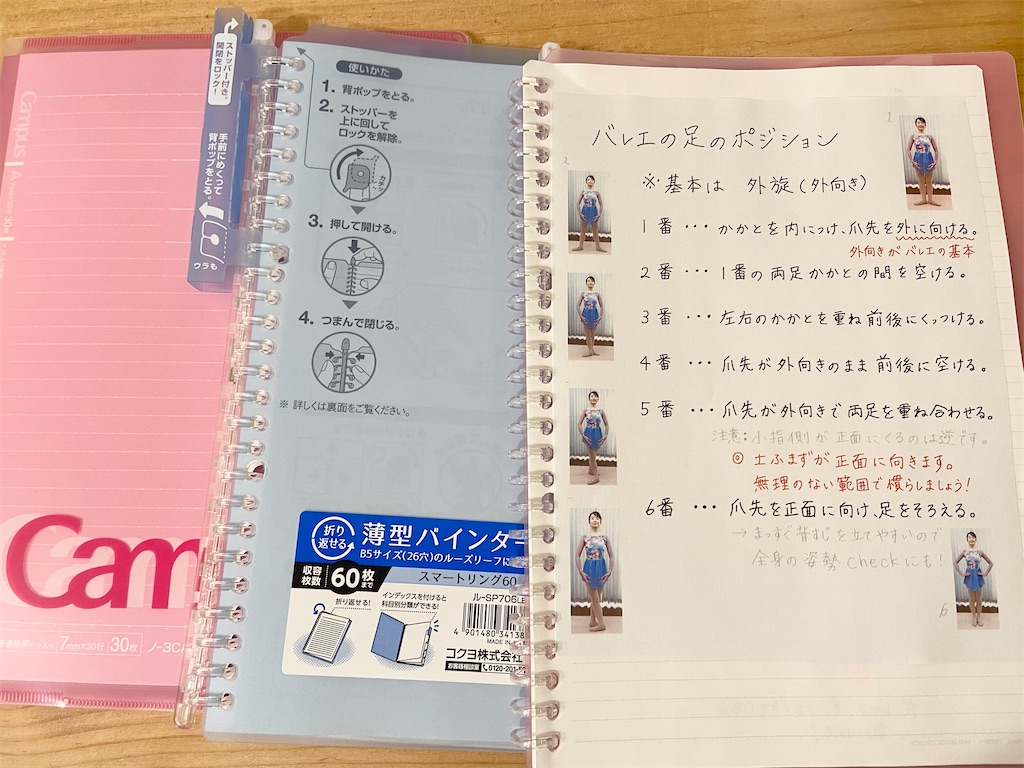 Campus
Cam
7mm×30行
30枚
ストッパー付き。
開閉をロック！
手前にめくって
背ポップをとる。
ウラも
使いかた
1. 背ポップをとる。
2. ストッパーを
上に回して
ロックを解除。
カチッ
3. 押して開ける。
4. つまんで閉じる。
※ 詳しくは裏面をご覧ください。
折り
返せる
薄型バインダー
B5サイズ(26穴)のルーズリーフに
収容
枚数
60枚まで
スマートリング60
ル-SP706
折り返せる！
インデックスを付けると
科目別分類ができる！
4 901480 34138
MADE IN
コクヨ株式会社
お客様相談室
0120-201-
バレエの足のポジション
1
2
※基本は 外旋(外向き)
1番 ・・・ かかとを内につけ、爪先を外に向ける。
外向きがバレエの基本
2番 ・・・ 1番の両足かかとの間を空ける。
3番 ・・・ 左右のかかとを重ね前後にくっつける。
4番 ・・・ 爪先が外向きのまま前後に空ける。
5番 ・・・ 爪先が外向きで両足を重ね合わせる。
注意：小指側が正面にくるのは逆です。
◎ 土ふまずが正面に向きます。
無理のない範囲で慣らしましょう！
6番 ・・・ 爪先を正面に向け、足をそろえる。
→まっすぐ背すじを立てやすいので
全身の姿勢Checkにも！
6